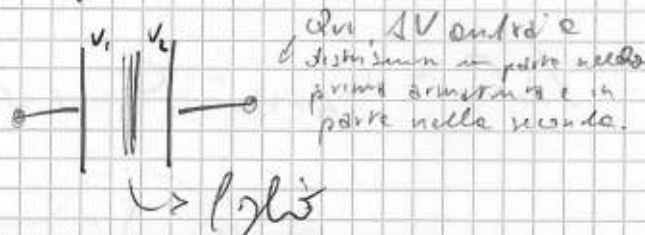 V₁ V₂
Qui, ΔV andrà a
distribuirsi in parte nella
prima armatura e in
parte nella seconda.
foglio